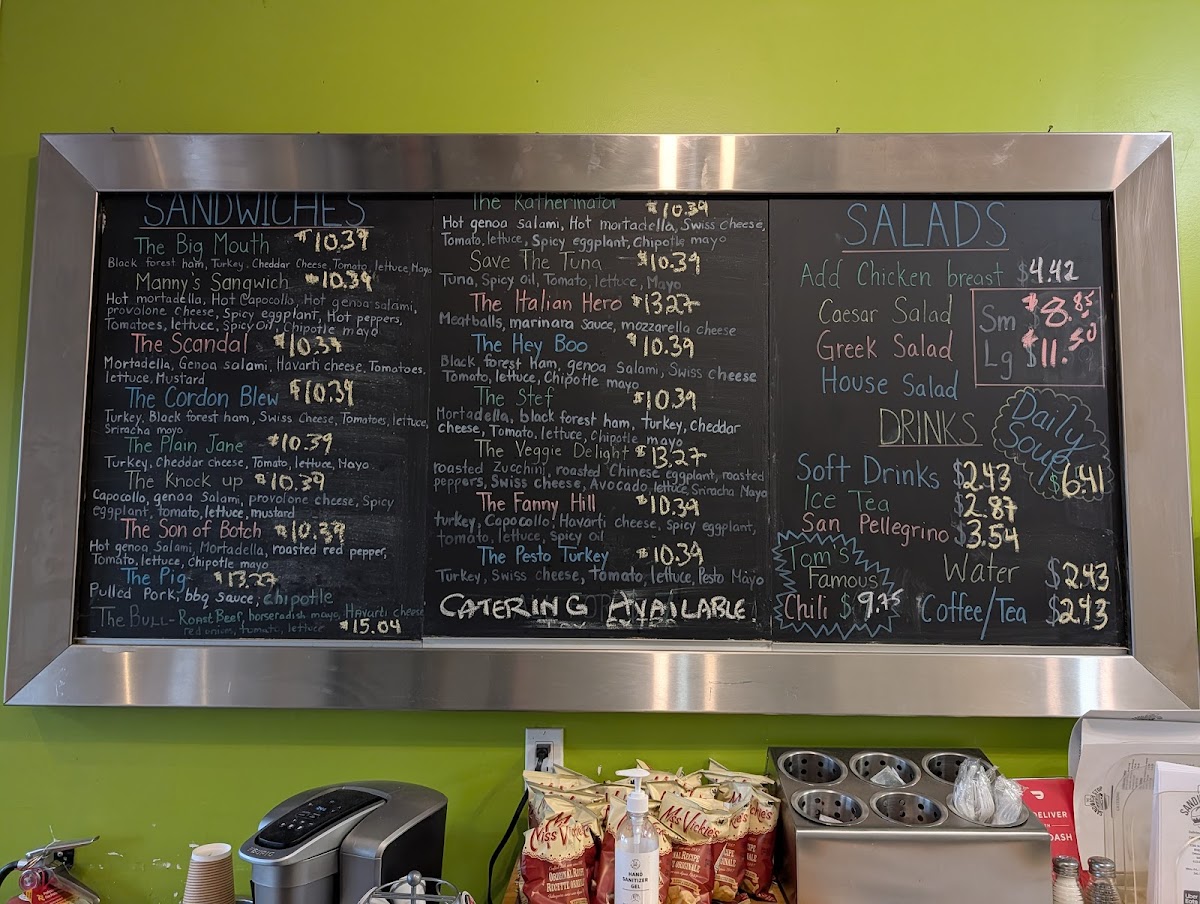 SANDWICHES
The Big Mouth $10.39
Black forest ham, Turkey, Cheddar Cheese, Tomato, lettuce, Mayo
Manny's Sangwich $10.39
Hot mortadella, Hot Capocollo, Hot genoa salami,
provolone cheese, Spicy eggplant, Hot peppers,
Tomatoes, lettuce, Spicy Oil, Chipotle mayo
The Scandal $10.39
Mortadella, Genoa salami, Havarti cheese, Tomatoes,
lettuce, Mustard
The Cordon Blew $10.39
Turkey, Black forest ham, Swiss Cheese, Tomatoes, lettuce,
Sriracha mayo
The Plain Jane $10.39
Turkey, Cheddar cheese, Tomato, lettuce, Mayo
The Knock up $10.39
Capocollo, genoa Salami, provolone cheese, Spicy
eggplant, tomato, lettuce, mustard
The Son of Botch $10.39
Hot genoa Salami, Mortadella, roasted red pepper,
Tomato, lettuce, Chipotle mayo
The Pig $13.27
Pulled Pork, bbq sauce, chipotle
The BULL- Roast Beef, horseradish mayo, Havarti cheese
red onion, tomato, lettuce $15.04
The Katherinator $10.39
Hot genoa salami, Hot mortadella, Swiss cheese,
Tomato, lettuce, Spicy eggplant, Chipotle mayo
Save The Tuna $10.39
Tuna, Spicy oil, Tomato, lettuce, Mayo
The Italian Hero $13.27
Meatballs, marinara sauce, mozzarella cheese
The Hey Boo $10.39
Black forest Ham, genoa salami, Swiss cheese
Tomato, lettuce, Chipotle mayo
The Stef $10.39
Mortadella, black forest ham, Turkey, Cheddar
cheese, Tomato, lettuce, Chipotle mayo
The Veggie Delight $13.27
roasted Zucchini, roasted Chinese eggplant, roasted
peppers, Swiss cheese, Avocado, lettuce, Sriracha Mayo
The Fanny Hill $10.39
turkey, Capocollo, Havarti cheese, Spicy eggplant,
tomato, lettuce, Spicy oil
The Pesto Turkey $10.39
Turkey, Swiss cheese, Tomato, lettuce, Pesto Mayo
CATERING AVAILABLE
SALADS
Add Chicken breast $4.42
Caesar Salad
Greek Salad
House Salad
Sm $8.85
Lg $11.50
DRINKS
Daily
Soup
$6.41
Soft Drinks $2.43
Ice Tea $2.87
San Pellegrino $3.54
Water $2.43
Coffee/Tea $2.43
Tom's
Famous
Chili $9.75
KEURIG
Miss Vickie's
ORIGINAL RECIPE
RECETTE ORIGINALE
Miss Vickie's
HAND
SANITIZER
GEL
DELIVER
DASH
Uber
Eats